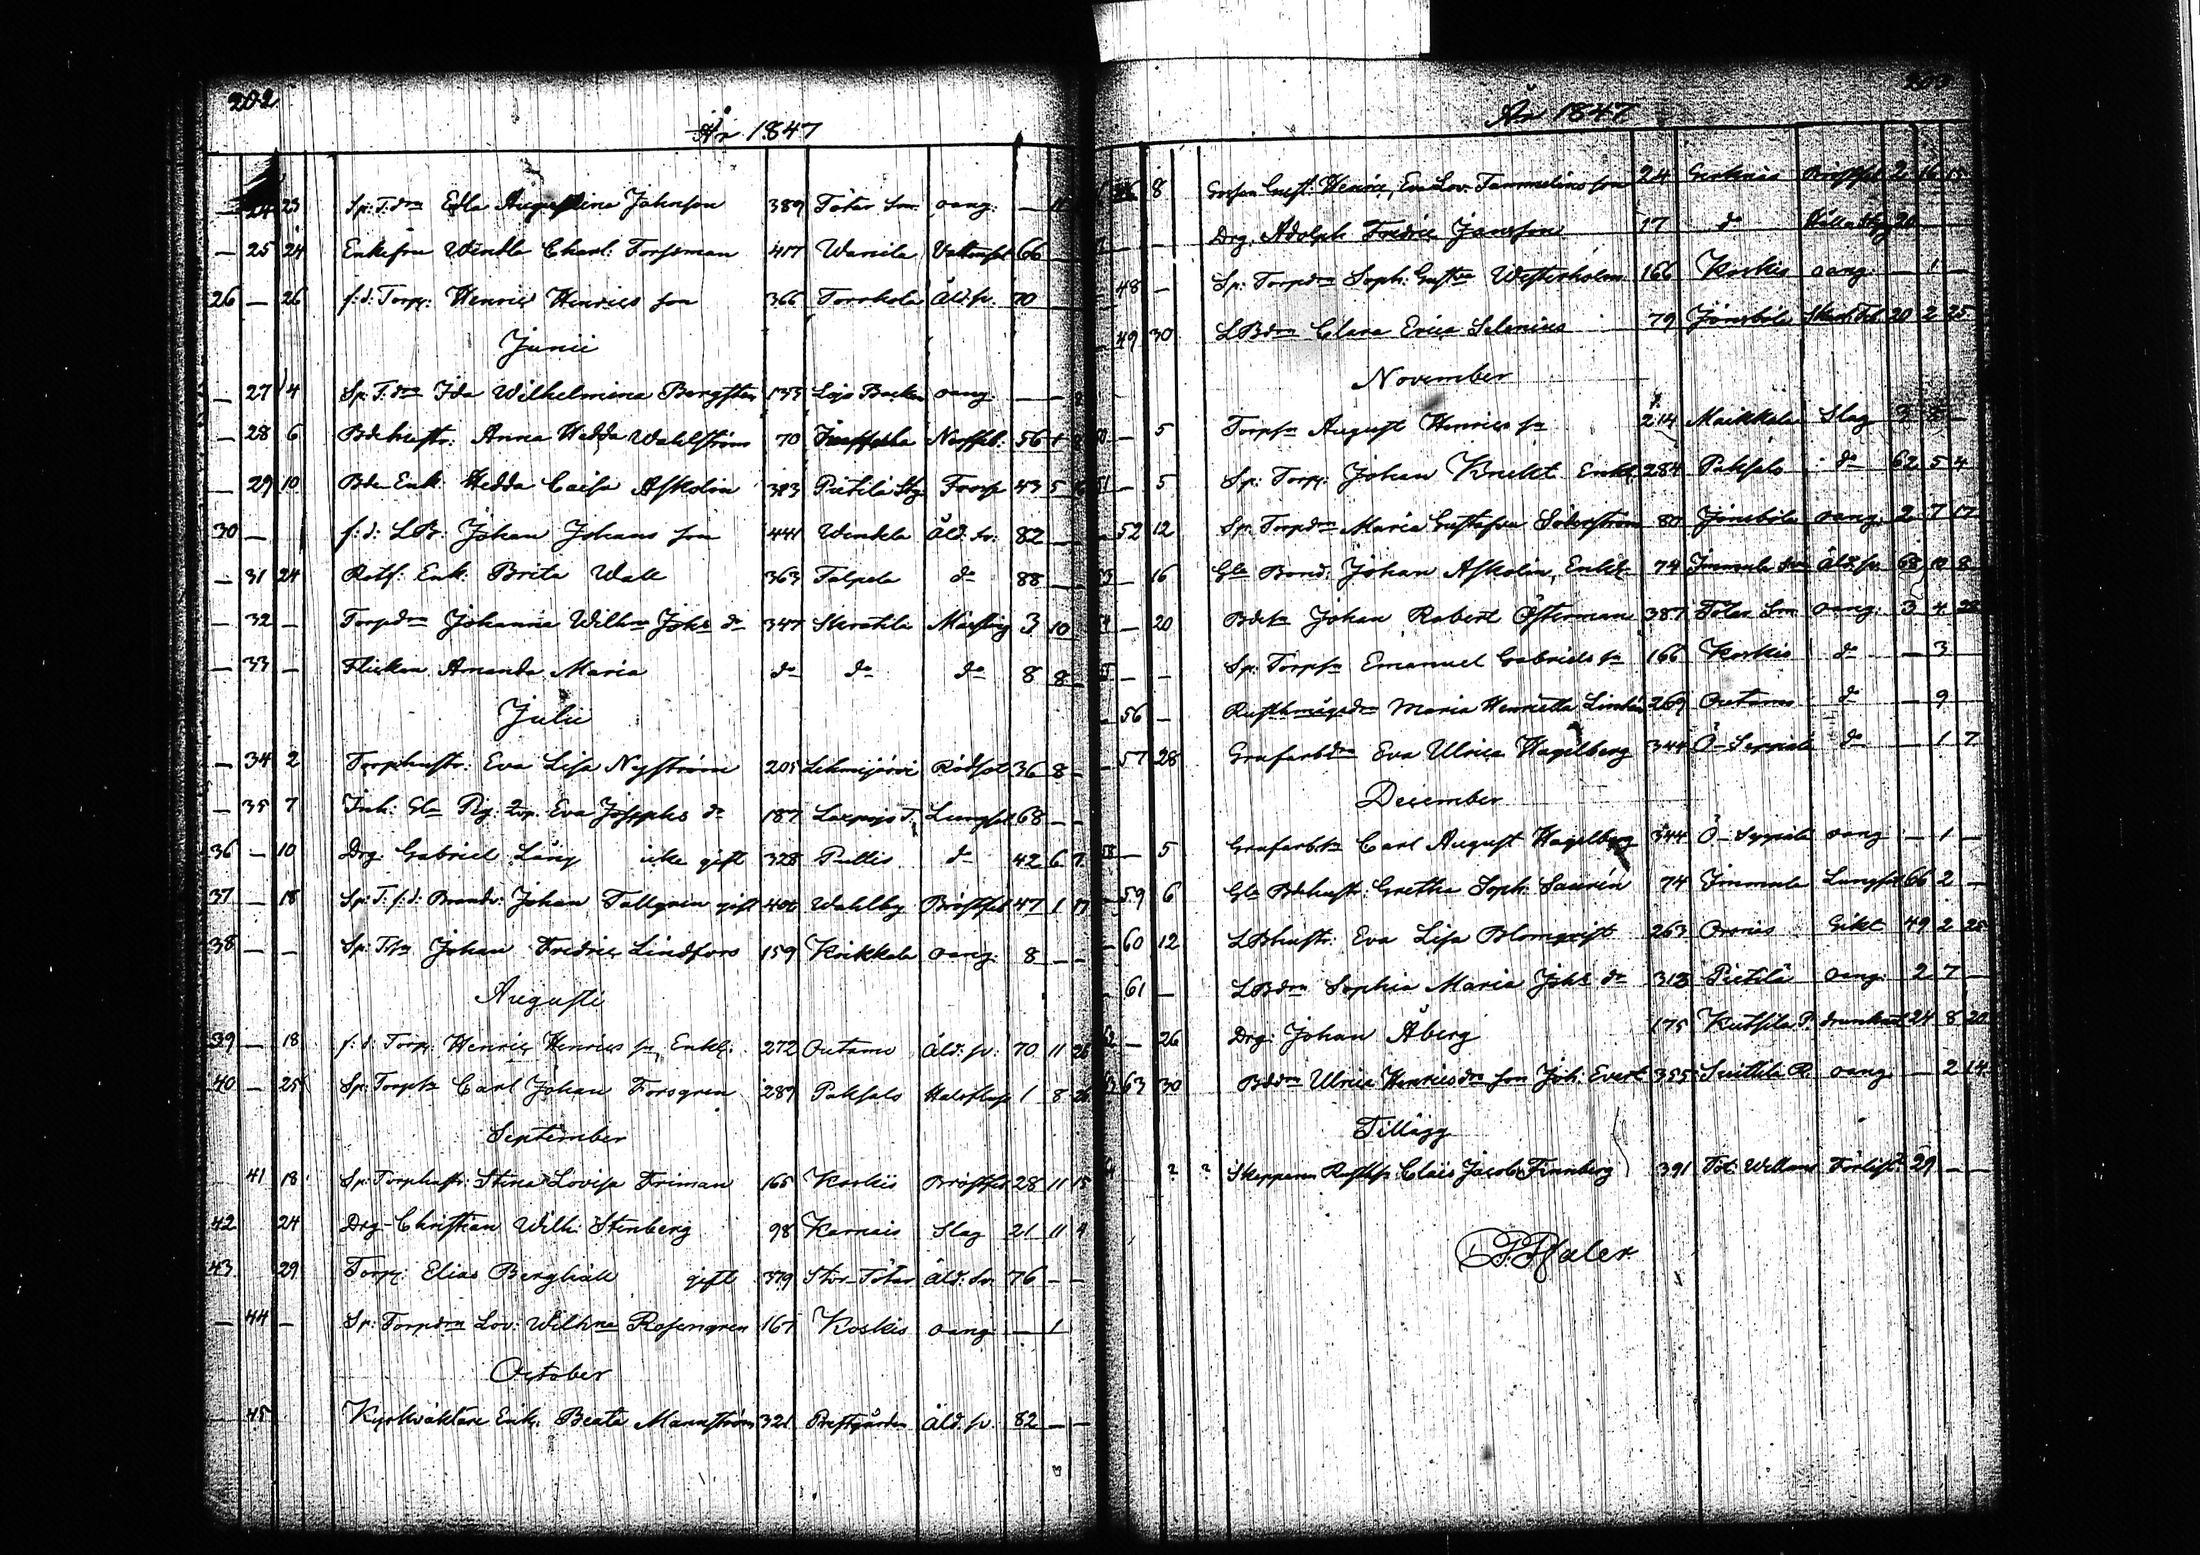 202
År 1847
24 23 Sp: T:dr Edla Augustina Johnson 389 Tötar Sm oang: —
— 25 24 Enkefru Wendla Charl: Forssman 417 Wanila Vattusot 66 —
26 — 26 f:d: Torp: Henric Henrics son 366 Torrkola Åld.sv. 70
Junii
— 27 4 Sp: T:dr Ida Wilhelmina Bergsten 133 Lojo Backen oang — —
— 28 6 Bdehustr: Anna Hedda Wahlström 70 Nerffeb. 56 1
— 29 10 Bde Enk. Hedda Caisa Askolin 383 Pietilä Stg 43 5
30 — f:d: LB: Johan Johans son 441 Winkela Åld. sv: 82 —
— 31 24 Rotf: Enk: Brita Wall 363 Talpela do 88 —
— 32 — Torpdr Johanna Wilhna Johs dr 347 Skrattila Mässling 3 10
— 33 — Flickan Amanda Maria do do do 8 8 —
Julii
— 34 2 Torphustr: Eva Lisa Nyström 205 Lehmijärvi Rödsot 36 8 —
— 35 7 Inh: Gla Pig. Eva Josephs dr 187 Lungsot 68 — —
36 — 10 Drg Gabriel Lång icke gift 328 Pullis do 42 6 7
37 — 18 Sp: T: f:d: Brandv: Johan Tallgren gift 406 Wahlby Bröstfeb 47 1 17
38 — — Sp: T:sn Johan Fredric Lindfors 159 Kaikkola oang: 8 — —
Augusti
39 — 18 f:d: Torp: Henric Henrics sn, Enkl: 272 Outamo Åld: sv: 70 11 26
40 — 25 Sp: Torpsn Carl Johan Forsgren 289 Paksalo Halsfluss 1 8 26
September
41 18 Sp: Torphustr: Stina Lovisa Friman 165 Koskis Bröstfeb 28 11 15
42 24 Drg Christian Wilh: Stenberg 98 Karnais Slag 21 11 4
43 29 Torp: Elias Berghäll gift 379 Stor-Tötar Åld. sv. 76 — —
— 44 — Sp: Torpdr Lov: Wilhna Rosengren 167 Koskis oang — 1
October
45 Kyrkväktare Enk: Beata Mannström 321 Prestgården Åld. sv. 82 — —
203
År 1847
46 8 Gossen Gust: Henric, Eva Lov. Tammelins son 24 Gerknäs Bröstfeb 2 16 15
— — Drg. Adolph Fredric Jansson 17 do 20
— 48 — Sp: Torpdr Soph: Gustva Westerholm 166 Koskis oang: — 1 —
— 49 30 LBdr Clara Erica Selenius 79 Jönsböle 20 2 25
November
50 — 5 Torpsn August Henrics sn 214 Maikkala Slag 3 8 —
51 — 5 Sp: Torp: Johan Knekt Enkl: 284 Paksalo do 62 5 4
— 52 12 Sp: Torpdr Maria Gustafva Söderström 80 Jönsböle oang: 2 7 17
53 — 16 Gla Bond: Johan Askolin, Enkl: 74 Immula Åld. sv. 68 10 8
54 — 20 Bdesn Johan Robert Österman 387 Tötar Sm oang: 3 4 22
55 — — Sp: Torpsn Emanuel Gabriels sn 166 Koskis do — 3
— 56 — Maria Henrietta Lindén 269 Outamo do — 9
— 57 28 Grafarbdr Eva Ulrica Hagelberg 344 Ö- Seppälä do — 1 7
December
58 — 5 Grafarbsn Carl August Hagelberg 344 Ö- Seppälä oang — 1 —
— 59 6 Gla Bdehustr: Gretha Soph: Saurén 74 Immula Lungsot 66 2 —
— 60 12 LBhustr: Eva Lisa Blomqvist 263 Ornäs Gikt 49 2 25
— 61 — LBdr Sophia Maria Johs dr 313 Pietilä oang: 2 7 —
62 — 26 Drg: Johan Åberg 175 Kutsila drunknat 24 8 20
63 30 Bddr Ulrica Henricsdrs son Joh: Evert 355 Suittila oang — 2 14
Tillägg
64 ? ? Skepparen Claës Jacob Finnberg 391 Töt: Wellans Förlist 29 — —